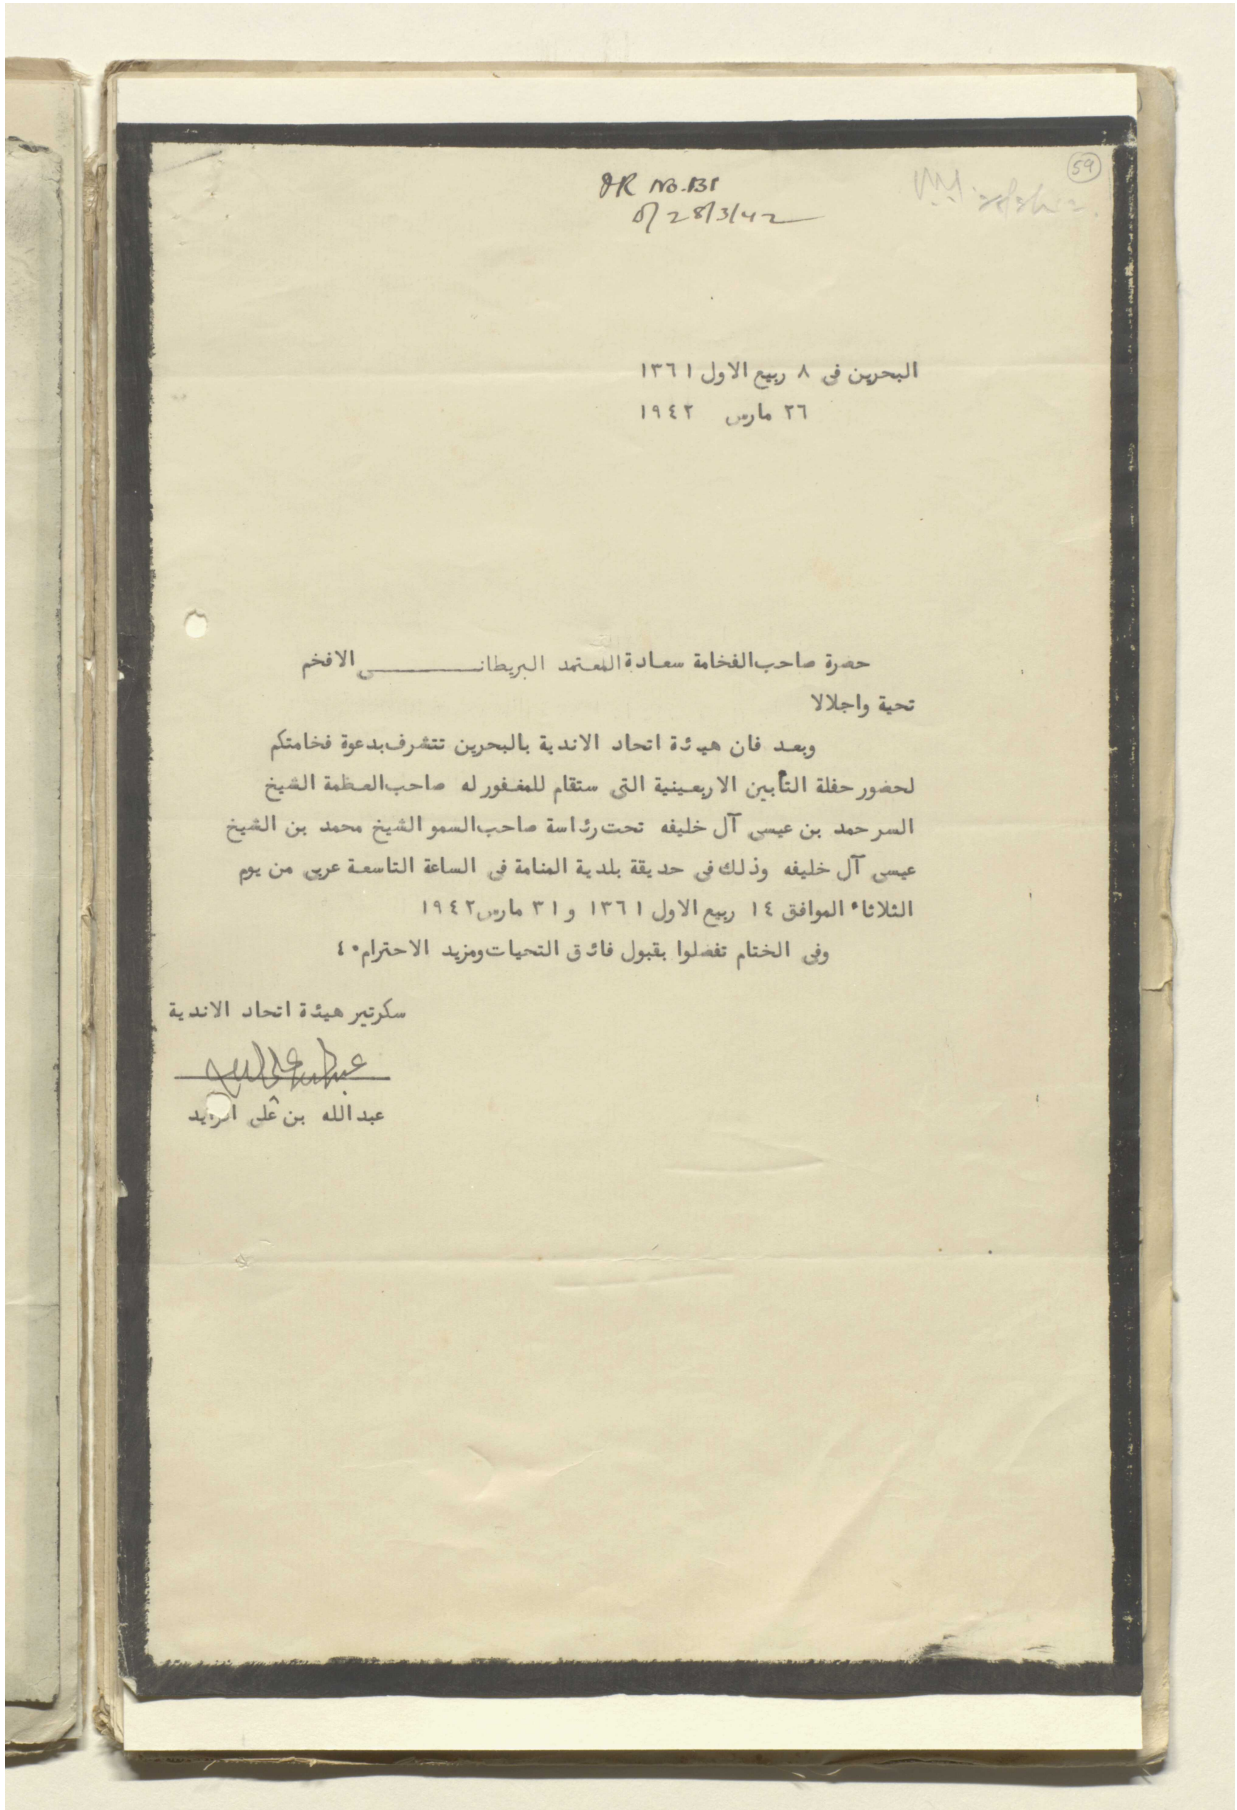 59
OR No. 131
d/ 28/3/42
البحرين فى ٨ ربيع الاول ١٣٦١
٢٦ مارس ١٩٤٢
حضرة صاحب الفخامة سعادة المعتمد البريطانى الافخم
تحية واجلالا
وبعد فان هيئة اتحاد الاندية بالبحرين تتشرف بدعوة فخامتكم
لحضور حفلة التأبين الاربعينية التى ستقام للمغفور له صاحب العظمة الشيخ
السر حمد بن عيسى آل خليفه تحت رئاسة صاحب السمو الشيخ محمد بن الشيخ
عيسى آل خليفه وذلك فى حديقة بلدية المنامة فى الساعة التاسعة عربى من يوم
الثلاثاء الموافق ١٤ ربيع الاول ١٣٦١ و ٣١ مارس ١٩٤٢
وفى الختام تفضلوا بقبول فائق التحيات ومزيد الاحترام ٠٤
سكرتير هيئة اتحاد الاندية
عبدالله بن على